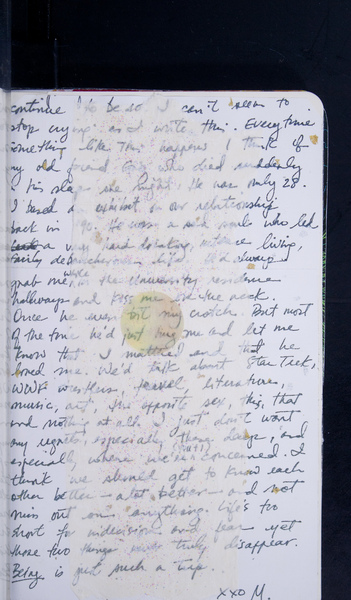 continue to be so I can't seem to
stop crying as I write this. Everytime
something like this happens I think of
my old friend who died suddenly
in his sleep one night. He was only 28.
I based an exhibit on our relationship
back in '90. He was a wild soul who led
a very hard drinking, intense living,
life. He'd always
grab me while in the University residence
hallways and kiss me on the neck.
Once he even bit my crotch. But most
of the time he'd just hug me and let me
know that I mattered and that he
loved me. We'd talk about Star Trek,
WWF wrestlers, travel, literature,
music, art, the opposite sex, this, that
and nothing at all. I just don't want
any regrets, especially things large, and
especially where we're concerned. I
think we should get to know each
other better - a lot better - and not
miss out on anything. Life's too
short for indecision and fear yet
those two things never truly disappear.
Being is just such a trap.
xxo M.